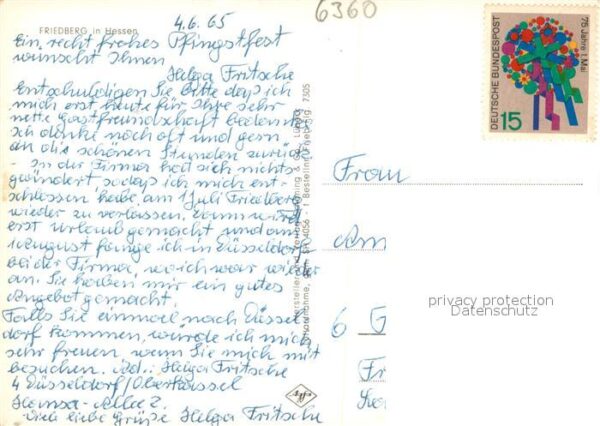 4.6.65
6360
FRIEDBERG in Hessen
Ein recht frohes Pfingstfest
wünscht Ihnen
Helga Fritsche
Entschuldigen Sie bitte daß ich
mich erst heute für Ihre sehr
nette Gastfreundschaft bedanke.
Ich denke noch oft und gern
an die schönen Stunden zurück
- In der Firma hat sich nichts
geändert, so daß ich mich ent-
schlossen habe, am 1. Juli Friedberg
wieder zu verlassen. Dann wird
erst Urlaub gemacht und am
1. August fange ich in Düsseldorf
bei der Firma, wo ich war wieder
an. Sie haben mir ein gutes
Angebot gemacht.
Falls Sie einmal nach Düssel
dorf kommen, würde ich mich
sehr freuen, wenn Sie mich mit
besuchen. Ad.: Helga Fritsche
4 Düsseldorf/Oberkassel
Hansa-Allee 2.
Viele liebe Grüße Helga Fritsche
DEUTSCHE BUNDESPOST
75 Jahre 1. Mai
15
Frau
Am
6 F
Fr
privacy protection
Datenschutz